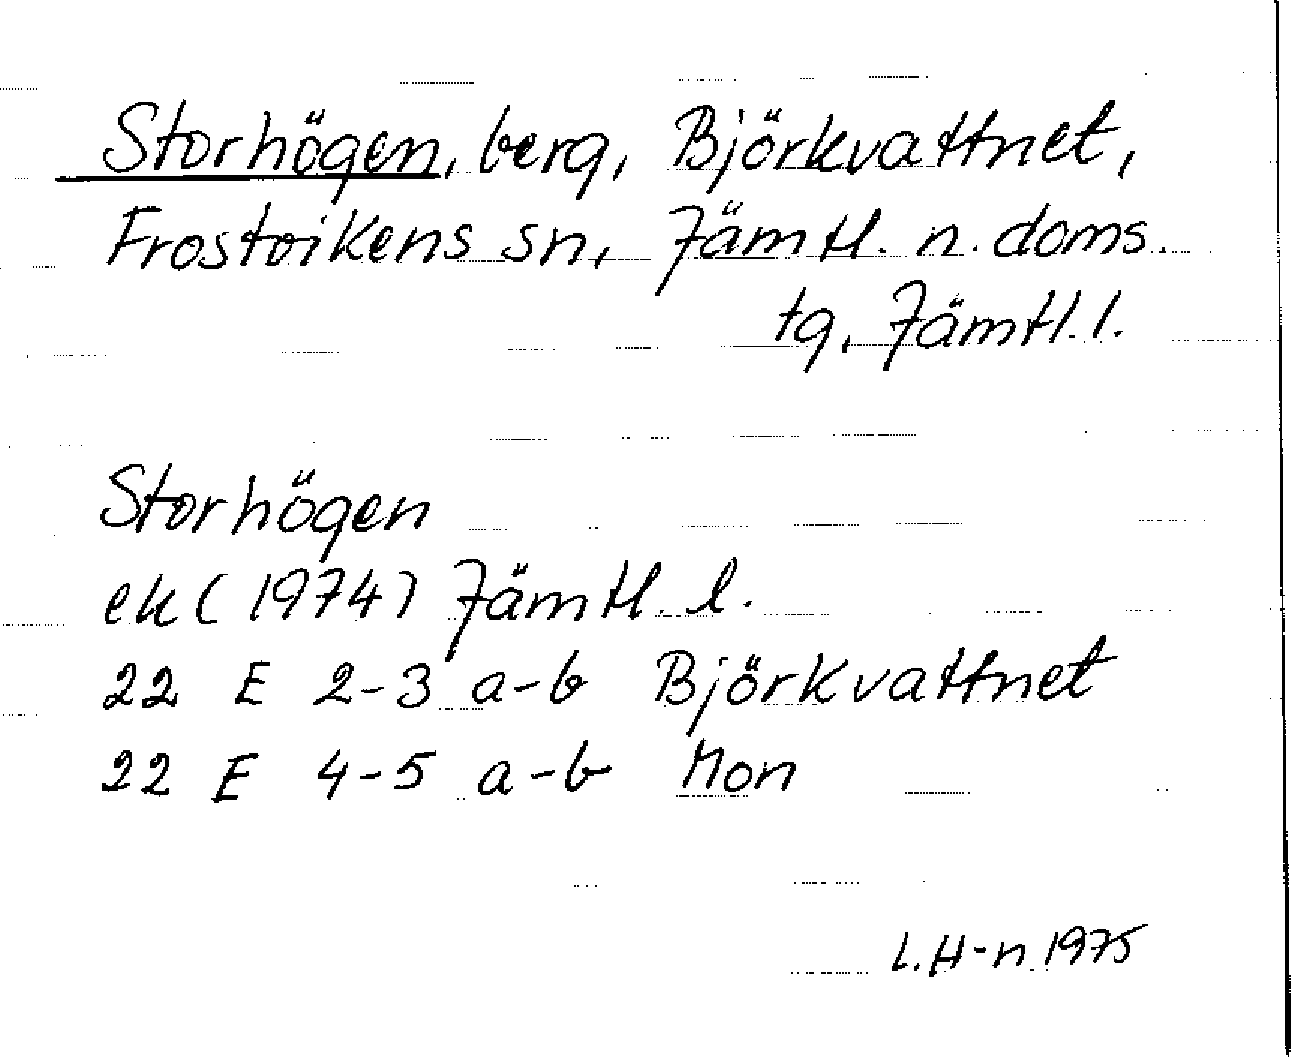 Storhögen, berg, Björkvattnet,
Frostvikens sn, Jämtl. n. doms.
tg, Jämtl. l.
Storhögen
ek (1974) Jämtl. l.
22 E 2-3 a-b Björkvattnet
22 E 4-5 a-b Mon
L. H-n 1975